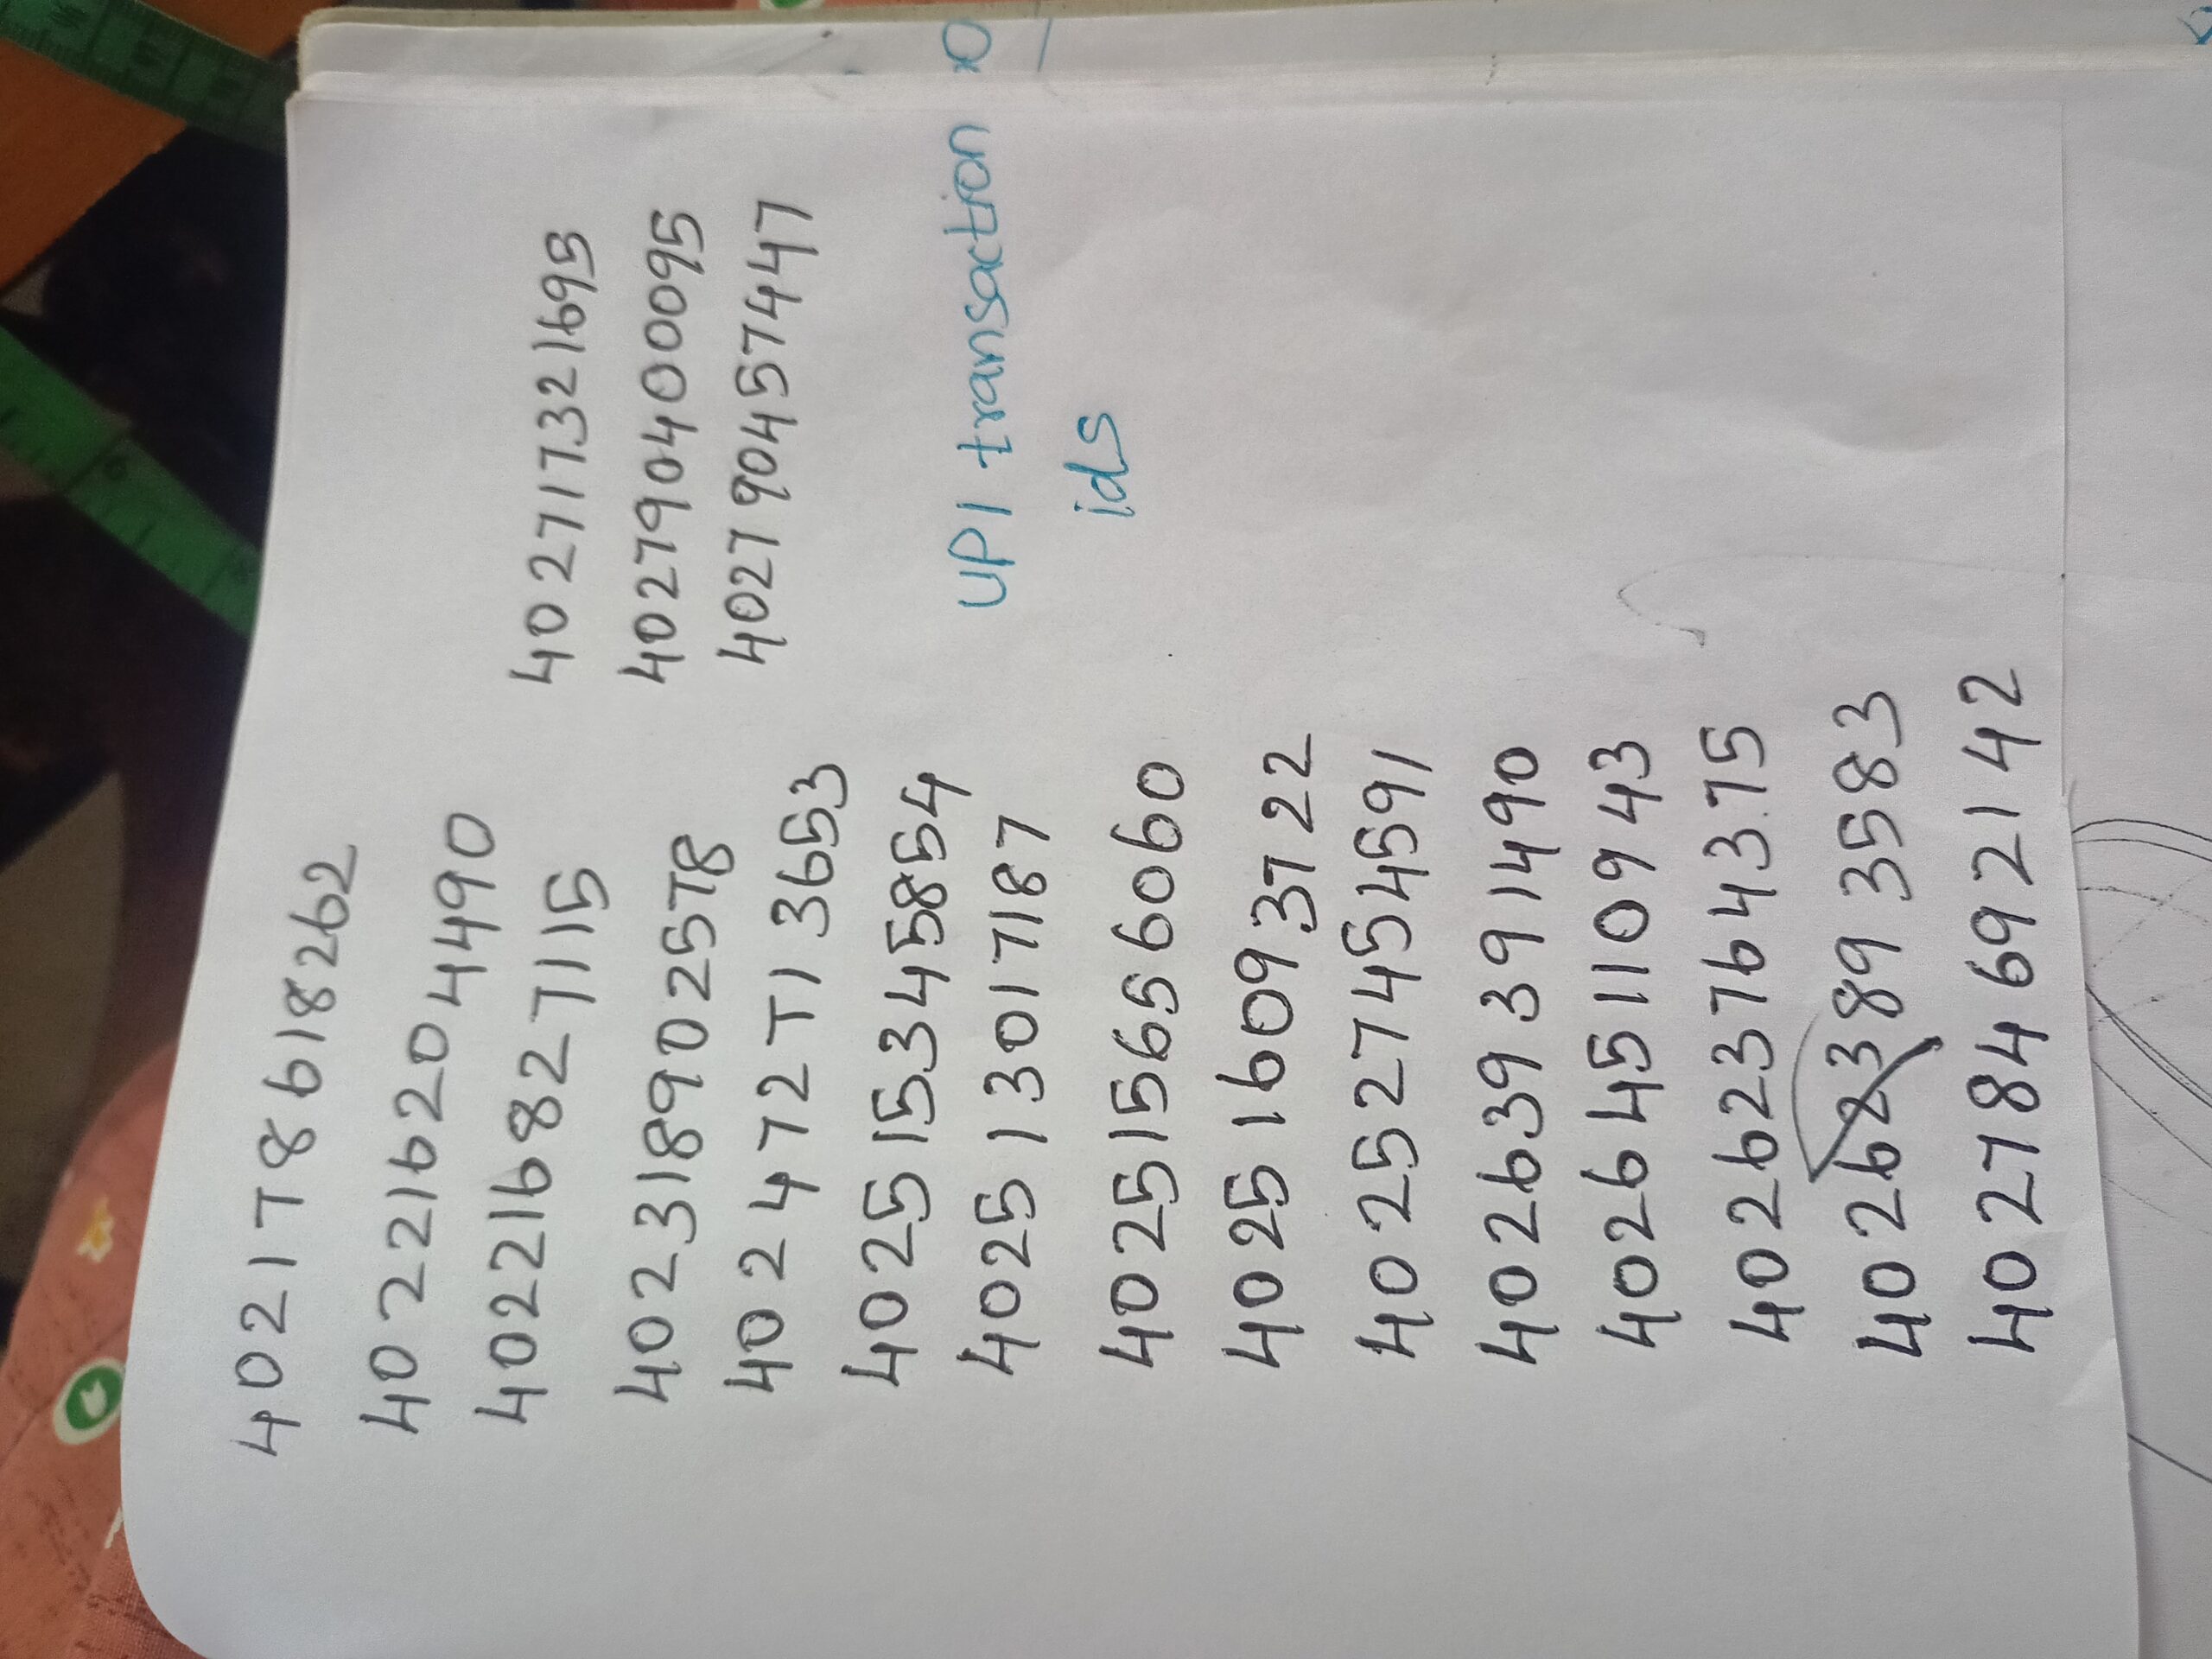 402178618262
402216204490
402216827115
402318902578
402472713653
402515345854
402513017187
402515656060
402516093722
402527454591
402639391490
402645110943
402623764375
402623893583
402784692142
402717321695
402790400095
402790457447
UPI transaction
ids